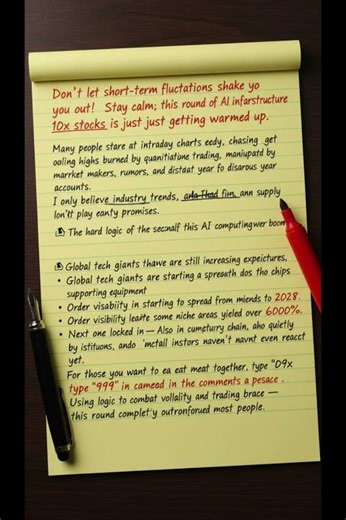 Don't let short-term fluctations shake yo
you out! Stay calm; this round of AI infarstructure
10x stocks is just just getting warmed up.
Many people stare at intraday charts eedy, chasing get
ooling highs burned by quanitiatione trading, maniupatd by
marrket makers, rumors, and distaat year fo disarous year
accounts.
I only believe industry trends, ann supply
lon't play eanty promises.
The hard logic of the this AI computingwer boom
Global tech giants thawe are still increasing expeictures,
• Global tech giants are starting a spreath dos tho chips
supporting equipment
• Order visabiity in starting to spread from miends to 2028.
• Order visibility leaite some niche areas yieled over 6000%.
• Next one locked in — Also in cumpturry chain, aho quietly
by istituons, ando 'mctall instors naven't navnt even reacct
yet.
For those you want to ea eat meat together, type "D9x
type "999" in cameod in the comments a pesace .
Using logic to combat vollality and trading brace —
this round completiy outronforued most people.